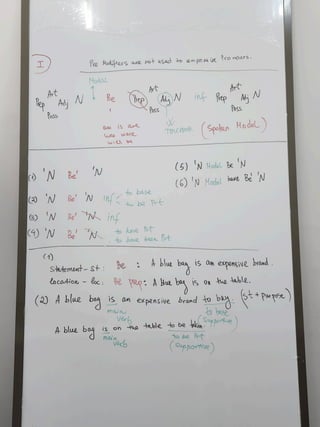 I
Pre Modifiers are not used to empensive Pronouns.
Modal
Art Art Art
Prep Adj N Be Prep Adj N inf Prep Adj N
Poss Poss Poss
am is are
was were
(Spoken Model)
(1) 'N Be' 'N
(5) 'N Modal Be 'N
(6) 'N Modal have Be' 'N
(2) 'N Be' 'N inf to base
to be Prt
(3) 'N Be' 'N inf
(4) 'N Be' 'N to have Prt
to have been Prt
(1)
Statement - st: Be : A blue bag is an expensive brand.
Location - loc: Be prep: A blue bag is on the table.
(2) A blue bag is an expensive brand to buy. (st + purpose)
main verb
to base
(supportive)
A blue bag is on the table to be
main verb
to be Prt
(supportive)